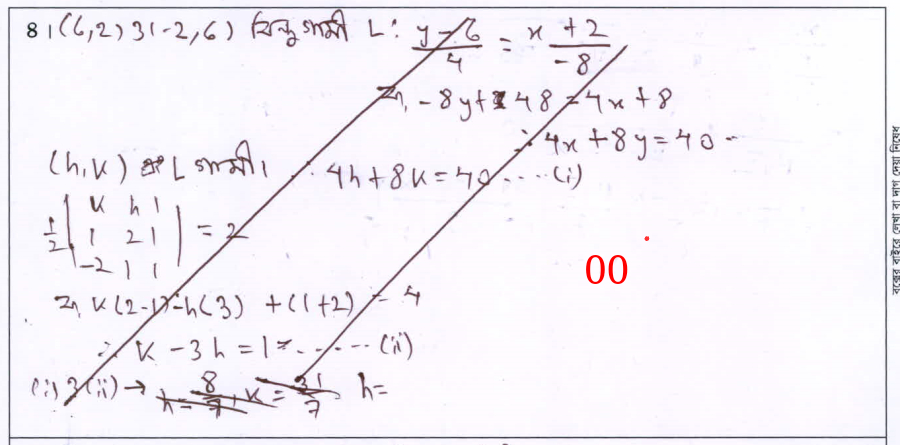 8। (6,2) ও (-2,6) বিন্দুগামী L: (y-6)/4 = (x+2)/-8
বা, -8y+48 = 4x+8
∴ 4x+8y=40
(h,k) L গামী। ∴ 4h+8k=40 ....(i)
1/2 | k h 1 |
| 1 2 1 | = 2
| -2 1 1 |
বা, k(2-1)-h(3) + (1+2) = 4
∴ k - 3h = 1 ...... (ii)
(i) ও (ii) → h = 8/7, k = 31/7 h=
00
বক্সের বাইরে লেখা বা দাগ দেয়া নিষেধ